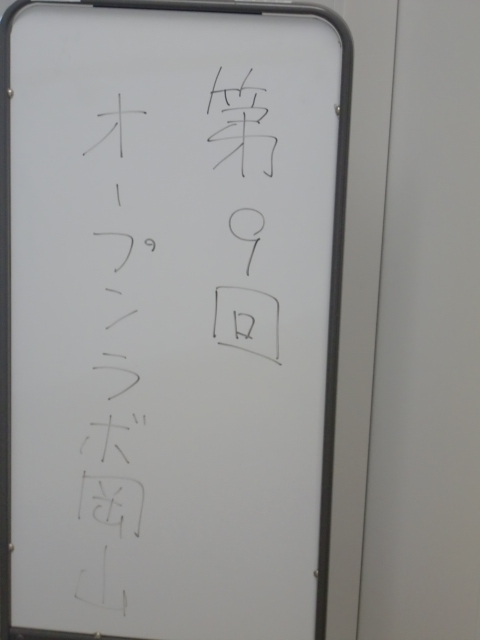 第9回
オープンラボ岡山